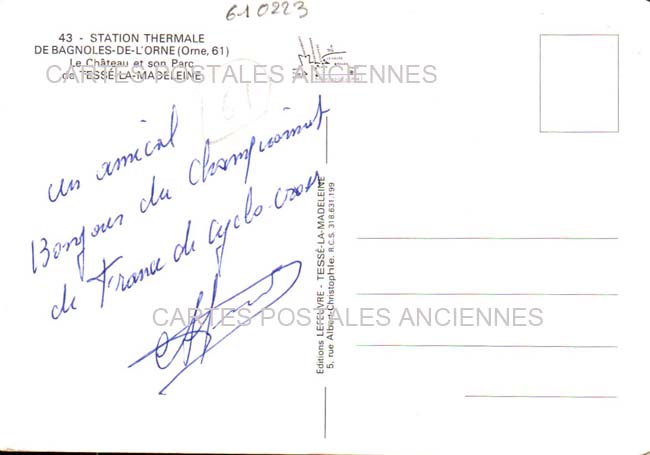 610223
43 - STATION THERMALE
DE BAGNOLES-DE-L'ORNE (Orne, 61)
Le Château et son Parc
de TESSÉ-LA-MADELEINE
CARTES POSTALES ANCIENNES
un amical
Bonjour du Championnat
de France de cyclo-cross
CARTES POSTALES ANCIENNES
Editions LEFEUVRE - TESSÉ-LA-MADELEINE
5, rue Albert-Christophle. R.C.S. 318.631.199